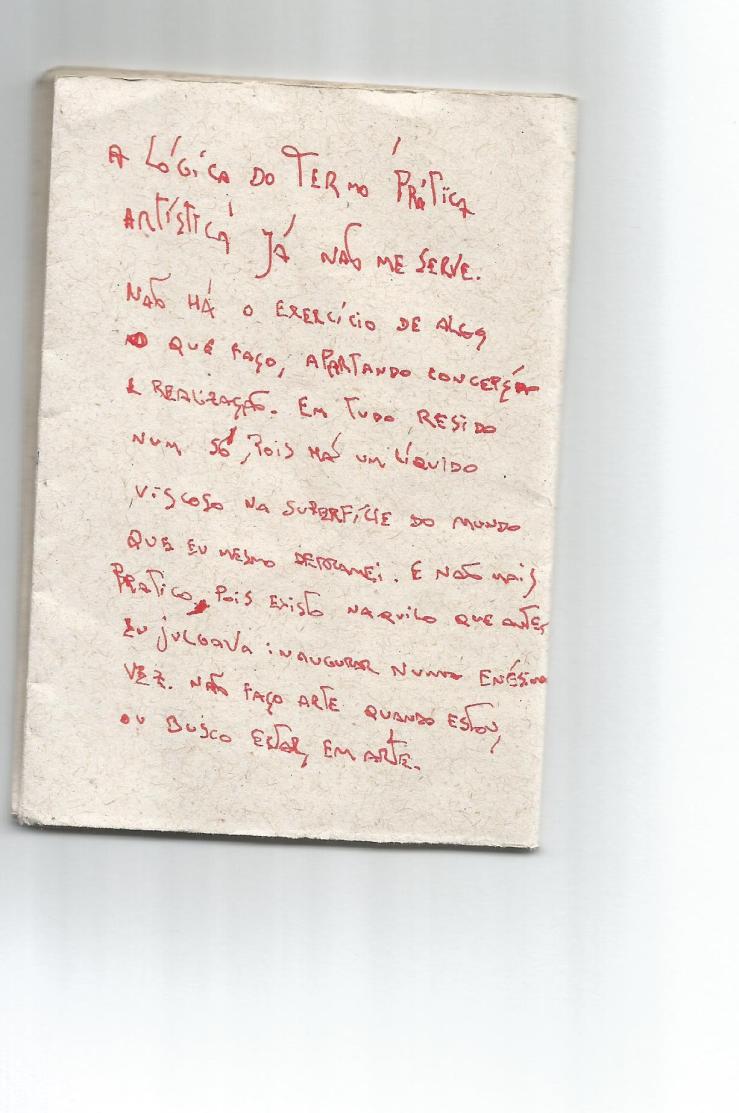 A LÓGICA DO TERMO PRÁTICA
ARTÍSTICA JÁ NÃO ME SERVE.
NÃO HÁ O EXERCÍCIO DE ALGO
NO QUE FAÇO, APARTANDO CONCEPÇÃO
E REALIZAÇÃO. EM TUDO RESIDO
NUM SÓ, POIS HÁ UM LÍQUIDO
VISCOSO NA SUPERFÍCIE DO MUNDO
QUE EU MESMO DERRAMEI. E NÃO MAIS
PRATICO, POIS EXISTO NAQUILO QUE ANTES
EU JULGAVA INAUGURAR NUMA ENÉSIMA
VEZ. NÃO FAÇO ARTE QUANDO ESTOU,
OU BUSCO ESTAR, EM ARTE.